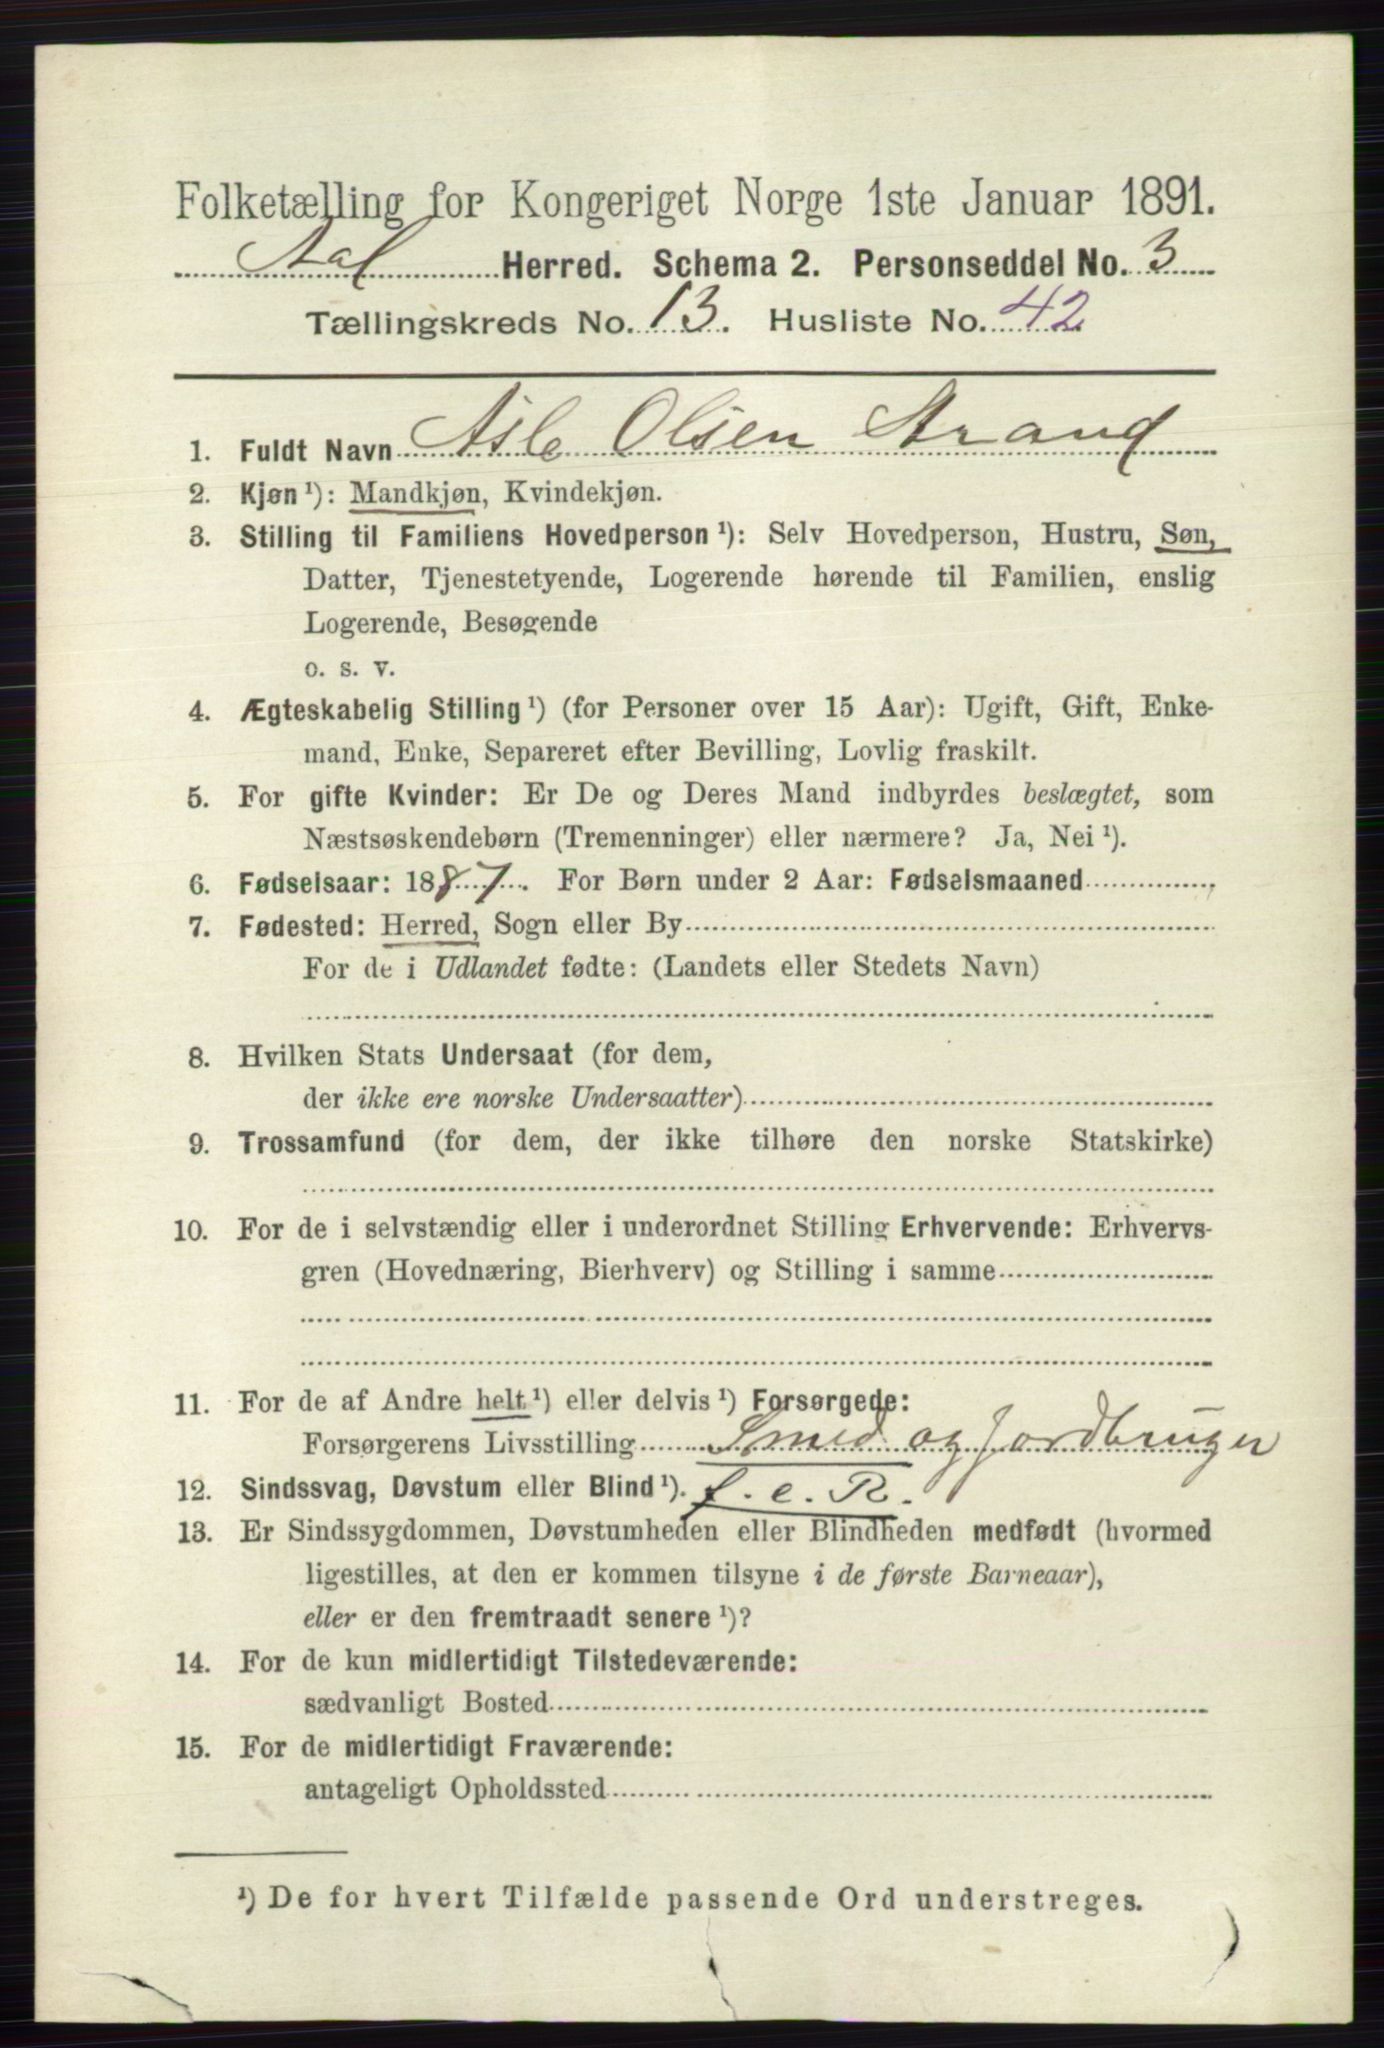 Folketælling for Kongeriget Norge 1ste Januar 1891.
Aal Herred. Schema 2. Personseddel No. 3
Tællingskreds No. 13. Husliste No. 42
1. Fuldt Navn Asle Olsen Strand
2. Kjøn ¹): Mandkjøn, Kvindekjøn.
3. Stilling til Familiens Hovedperson ¹): Selv Hovedperson, Hustru, Søn,
Datter, Tjenestetyende, Logerende hørende til Familien, enslig
Logerende, Besøgende
o. s. v.
4. Ægteskabelig Stilling ¹) (for Personer over 15 Aar): Ugift, Gift, Enke-
mand, Enke, Separeret efter Bevilling, Lovlig fraskilt.
5. For gifte Kvinder: Er De og Deres Mand indbyrdes beslægtet, som
Næstsøskendebørn (Tremenninger) eller nærmere? Ja, Nei ¹).
6. Fødselsaar: 1887. For Børn under 2 Aar: Fødselsmaaned
7. Fødested: Herred, Sogn eller By
For de i Udlandet fødte: (Landets eller Stedets Navn)
8. Hvilken Stats Undersaat (for dem,
der ikke ere norske Undersaatter)
9. Trossamfund (for dem, der ikke tilhøre den norske Statskirke)
10. For de i selvstændig eller i underordnet Stilling Erhvervende: Erhvervs-
gren (Hovednæring, Bierhverv) og Stilling i samme
11. For de af Andre helt ¹) eller delvis ¹) Forsørgede:
Forsørgerens Livsstilling Smed og Jordbruger
12. Sindssvag, Døvstum eller Blind ¹). f. e. R.
13. Er Sindssygdommen, Døvstumheden eller Blindheden medfødt (hvormed
ligestilles, at den er kommen tilsyne i de første Barneaar),
eller er den fremtraadt senere ¹)?
14. For de kun midlertidigt Tilstedeværende:
sædvanligt Bosted
15. For de midlertidigt Fraværende:
antageligt Opholdssted
¹) De for hvert Tilfælde passende Ord understreges.